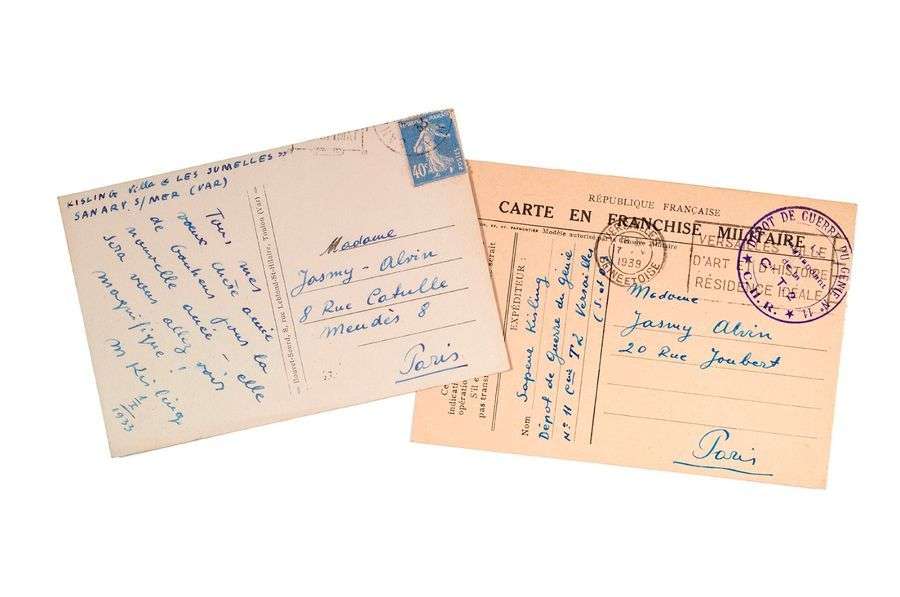 KISLING Villa « LES JUMELLES »
SANARY S/MER (VAR)
Tous mes
vœux chère amie
de bonheur pour la
nouvelle année - elle
sera vous allez voir
magnifique !
M Kisling
1933
Nouvel-Sourd, 8, rue Leblond-St-Hilaire, Toulon (Var)
40c
Madame
Jasmy - Alvin
8 Rue Catulle
Mendès 8
Paris
RÉPUBLIQUE FRANÇAISE
CARTE EN FRANCHISE MILITAIRE
Modèle autorisé
Militaire
EXPÉDITEUR :
Nom Sapeur Kisling
Dépôt de Guerre du Génie
N° 11 Cie T2 Versailles
(S. et O.)
indication
opération
S'il e
pas transi
serait
1939
SEINE ET OISE
VERSAILLES VILLE
D'ART D'HISTOIRE
RÉSIDENCE IDÉALE
DÉPÔT DE GUERRE DU GÉNIE N° 11
Madame
Jasmy Alvin
20 Rue Joubert
Paris